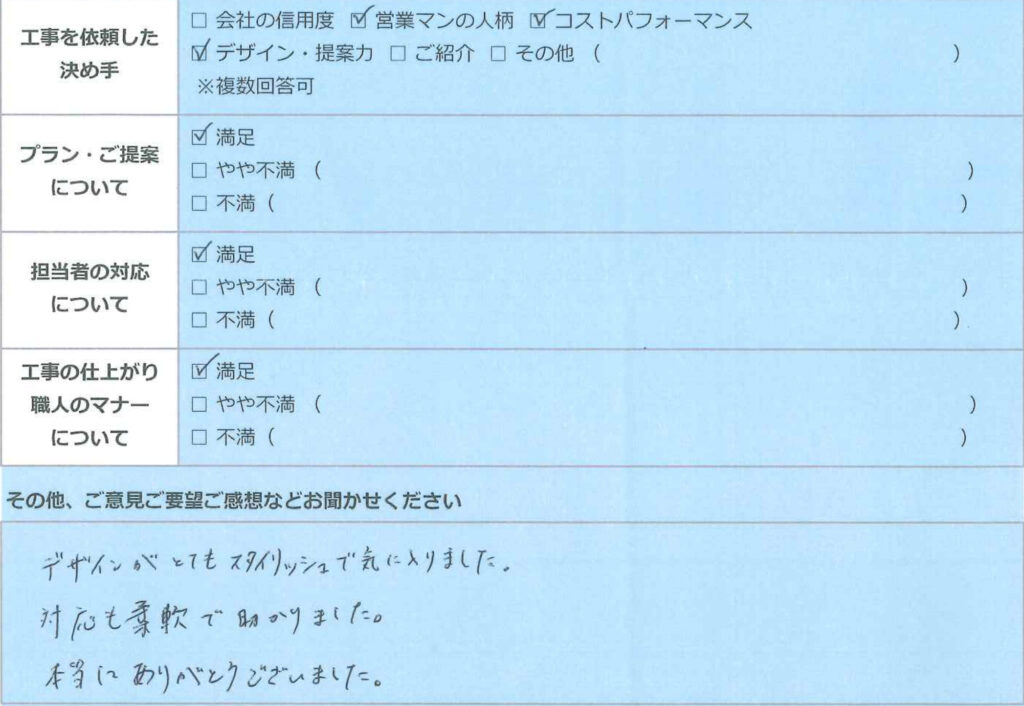 工事を依頼した
決め手
□ 会社の信用度 ☑ 営業マンの人柄 ☑ コストパフォーマンス
☑ デザイン・提案力 □ ご紹介 □ その他 ( )
※複数回答可
プラン・ご提案
について
☑ 満足
□ やや不満 ( )
□ 不満 ( )
担当者の対応
について
☑ 満足
□ やや不満 ( )
□ 不満 ( )
工事の仕上がり
職人のマナー
について
☑ 満足
□ やや不満 ( )
□ 不満 ( )
その他、ご意見ご要望ご感想などお聞かせください
デザインがとてもスタイリッシュで気に入りました。
対応も柔軟で助かりました。
本当にありがとうございました。